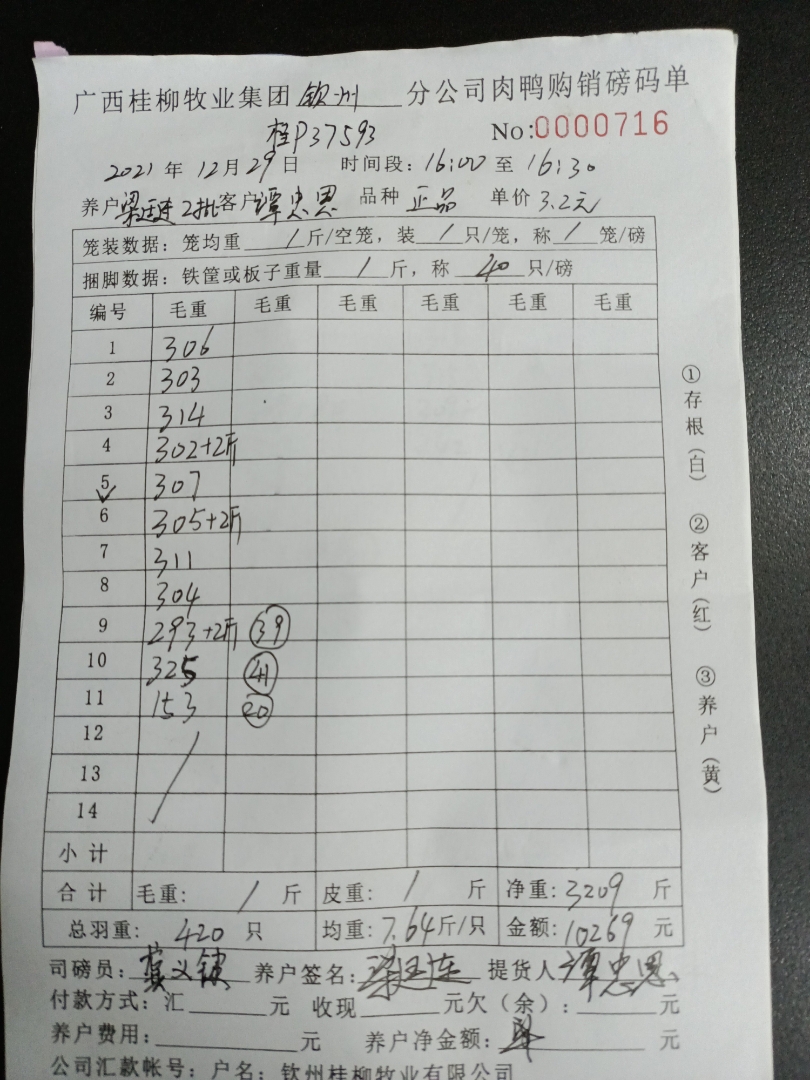 广西桂柳牧业集团 钦州 分公司肉鸭购销磅码单
桂P37593 No:0000716
2021年12月29日 时间段:16:00至16:30
养户 2批 客户 谭忠恩 品种 正品 单价 3.2元
笼装数据:笼均重 / 斤/空笼,装 / 只/笼,称 / 笼/磅
捆脚数据:铁筐或板子重量 / 斤,称 40 只/磅
编号 毛重 毛重 毛重 毛重 毛重 毛重
1 306
2 303
3 314
4 302+2斤
5 307
6 305+2斤
7 311
8 304
9 293+2斤 39
10 325 41
11 153 20
12
13
14
小计
合计 毛重: / 斤 皮重: / 斤 净重:3209 斤
总羽重: 420 只 均重:7.64斤/只 金额:10269 元
司磅员: 养户签名: 提货人 谭忠恩
付款方式:汇 元 收现 元欠(余): 元
养户费用: 元 养户净金额: 元
公司汇款帐号:户名:钦州桂柳牧业有限公司
①存根(白) ②客户(红) ③养户(黄)